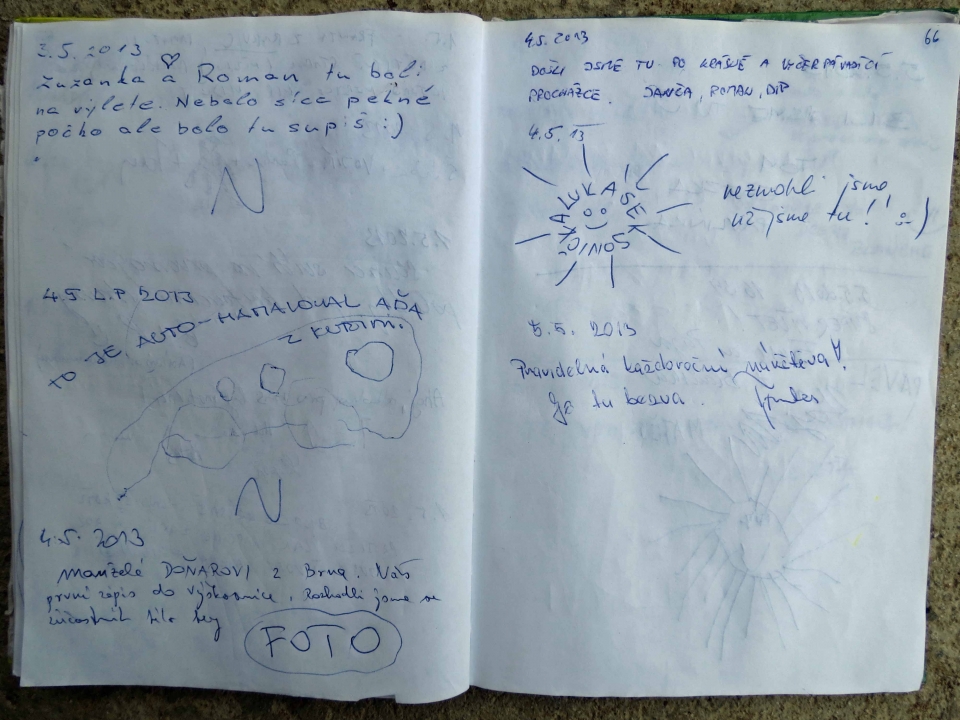 3.5.2013
Zuzanka a Roman tu boli
na výlete. Nebolo síce pekné
počko ale bolo tu supiš :)
N
4.5. L.P 2013
TO JE AUTO-NAMALOVAL AĎA
Z KUŘIM.
N
4.5. 2013
Manželé DOŇAROVI z Brna. Náš
první zápis do výškovnice, Rozhodli jsme se
zúčastnit této hry
FOTO
66
4.5. 2013
DOŠLI JSME TU PO KRÁSNÉ A VYČERPÁVAJÍCÍ
PROCHÁZCE. JANČA, ROMAN,
4.5. 13
LUKÁŠEK
nezmohli jsme
už jsme tu! :-)
5.5. 2013
Pravidelná každoroční návštěva!
Je tu bezva.